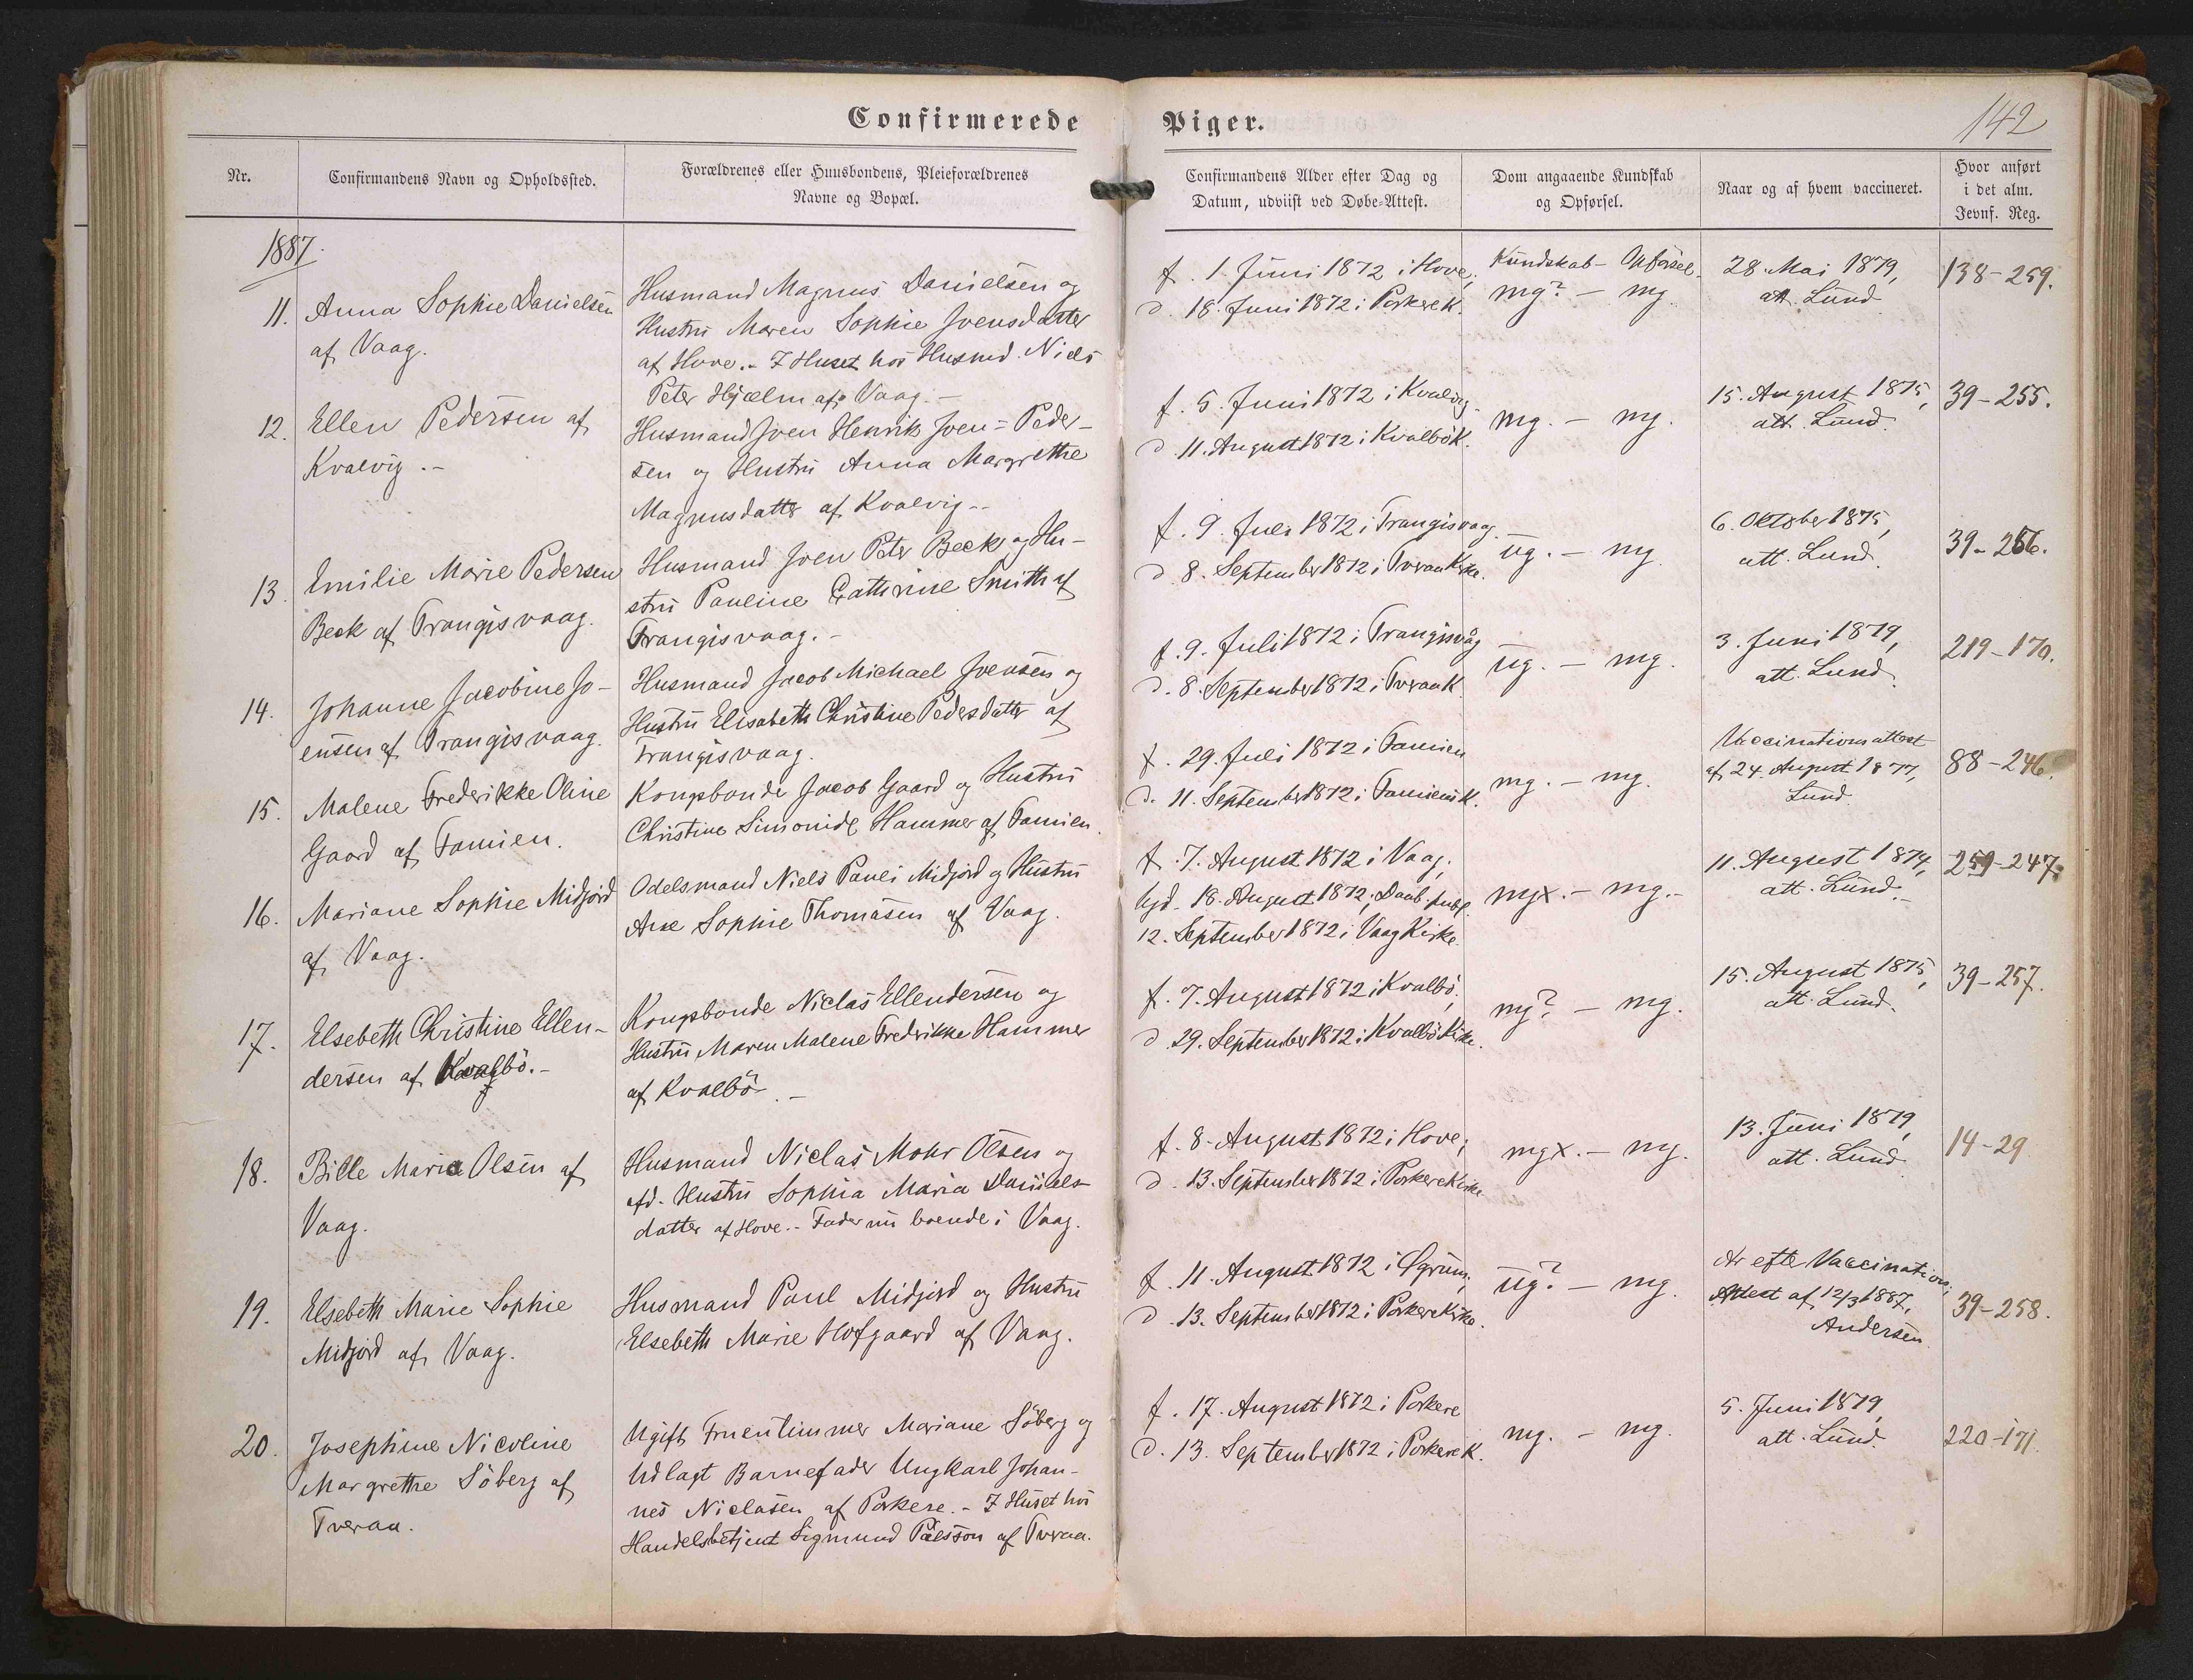 Confirmerede
Nr.
Confirmandens Navn og Opholdssted.
Forældrenes eller Huusbondens, Pleieforældrenes
Navne og Bopæl.
1887.
11. Anna Sophie Danielsen
af Vaag.
Husmand Magnus Danielsen og
Hustru Maren Sophie Joensdatter
af Hove. - I Huset hos Husmd. Niels
Peter Hjælm af Vaag. -
12. Ellen Pedersen af
Kvalvig. -
Husmand Joen Henrik Joen = Peder-
sen og Hustru Anna Margrethe
Magnusdatter af Kvalvig. -
13. Emilie Marie Pedersen
Beck af Trangisvaag.
Husmand Joen Peter Beck og Hu-
stru Pauline Cathrine Smith af
Trangisvaag. -
14. Johanne Jacobine Jo-
ensen af Trangisvaag.
Husmand Jacob Michael Joensen og
Hustru Elisabeth Christine Pedersdatter af
Trangisvaag.
15. Malene Frederikke Oline
Gaard af Famien.
Kongsbonde Jacob Gaard og Hustru
Christine Simonide Hammer af Famien.
16. Mariane Sophie Midjord
af Vaag.
Odelsmand Niels Pauli Midjord og Hustru
Ane Sophie Thomasen af Vaag.
17. Elsebeth Christine Ellen-
dersen af Kvalbö. -
Kongsbonde Niclas Ellendersen og
Hustru Maren Malene Frederikke Hammer
af Kvalbö. -
18. Bille Maria Olsen af
Vaag.
Husmand Niclas Mohr Olsen og
afd. Hustru Sophia Maria Daniels-
datter af Hove. - Fader nu boende i Vaag.
19. Elsebeth Marie Sophie
Midjord af Vaag.
Husmand Poul Midjord og Hustru
Elsebeth Marie Hofgaard af Vaag.
20. Josephine Nicoline
Margrethe Söberg af
Tveraa.
Ugift Fruentimmer Mariane Söberg og
Udlagt Barnefader Ungkarl Johan-
nes Niclasen af Porkere. - I Huset hos
Handelsbetjent Sigmund Pálsson af Tveraa.
Piger.
142
Confirmandens Alder efter Dag og
Datum, udviist ved Døbe-Attest.
Dom angaaende Kundskab
og Opførsel.
Naar og af hvem vaccineret.
Hvor anført
i det alm.
Jevnf. Reg.
f. 1. Juni 1872 i Hove,
d. 18. Juni 1872 i Porkere K.
Kundskab - Opførsel.
mg? - mg.
28. Mai 1879,
att. Lund
138-259.
f. 5. Juni 1872 i Kvalvig
d. 11. August 1872 i Kvalbö K.
mg. - mg.
15. August 1875,
att. Lund.
39-255.
f. 9. Juli 1872 i Trangisvaag
d. 8. September 1872 i Tveraa Kirke.
ug. - mg.
6. Oktober 1875,
att. Lund.
39-256.
f. 9. Juli 1872 i Trangisvåg
d. 8. September 1872 i Tveraa K.
ug. - mg.
3. Juni 1879,
att. Lund.
219-170.
f. 29. Juli 1872 i Famien
d. 11. September 1872 i Famiens K.
mg. - mg.
Vaccinationsattest
af 24. August 1877,
Lund.
88-246.
f. 7. August 1872 i Vaag,
hjd. 18. August 1872; Daab publ.
12. September 1872 i Vaag Kirke.
mgx. - mg. -
11. August 1874,
att. Lund. -
259-247.
f. 7. August 1872 i Kvalbö,
d. 29. September 1872 i Kvalbö Kirke.
mg? - mg.
15. August 1875,
att. Lund.
39-257.
f. 8. August 1872 i Hove;
d. 13. September 1872 i Porkere Kirke
mgx. - mg.
13. Juni 1879,
att. Lund
14-29
f. 11. August 1872 i Øgrum;
d. 13. September 1872 i Porkere Kirke.
ug? - mg.
Ar efter Vaccinations
Attest af 12/3 1887,
Andersen
39-258.
f. 17. August 1872 i Porkere
d. 13. September 1872 i Porkere K.
mg. - mg.
5. Juni 1879,
att. Lund.
220-171.